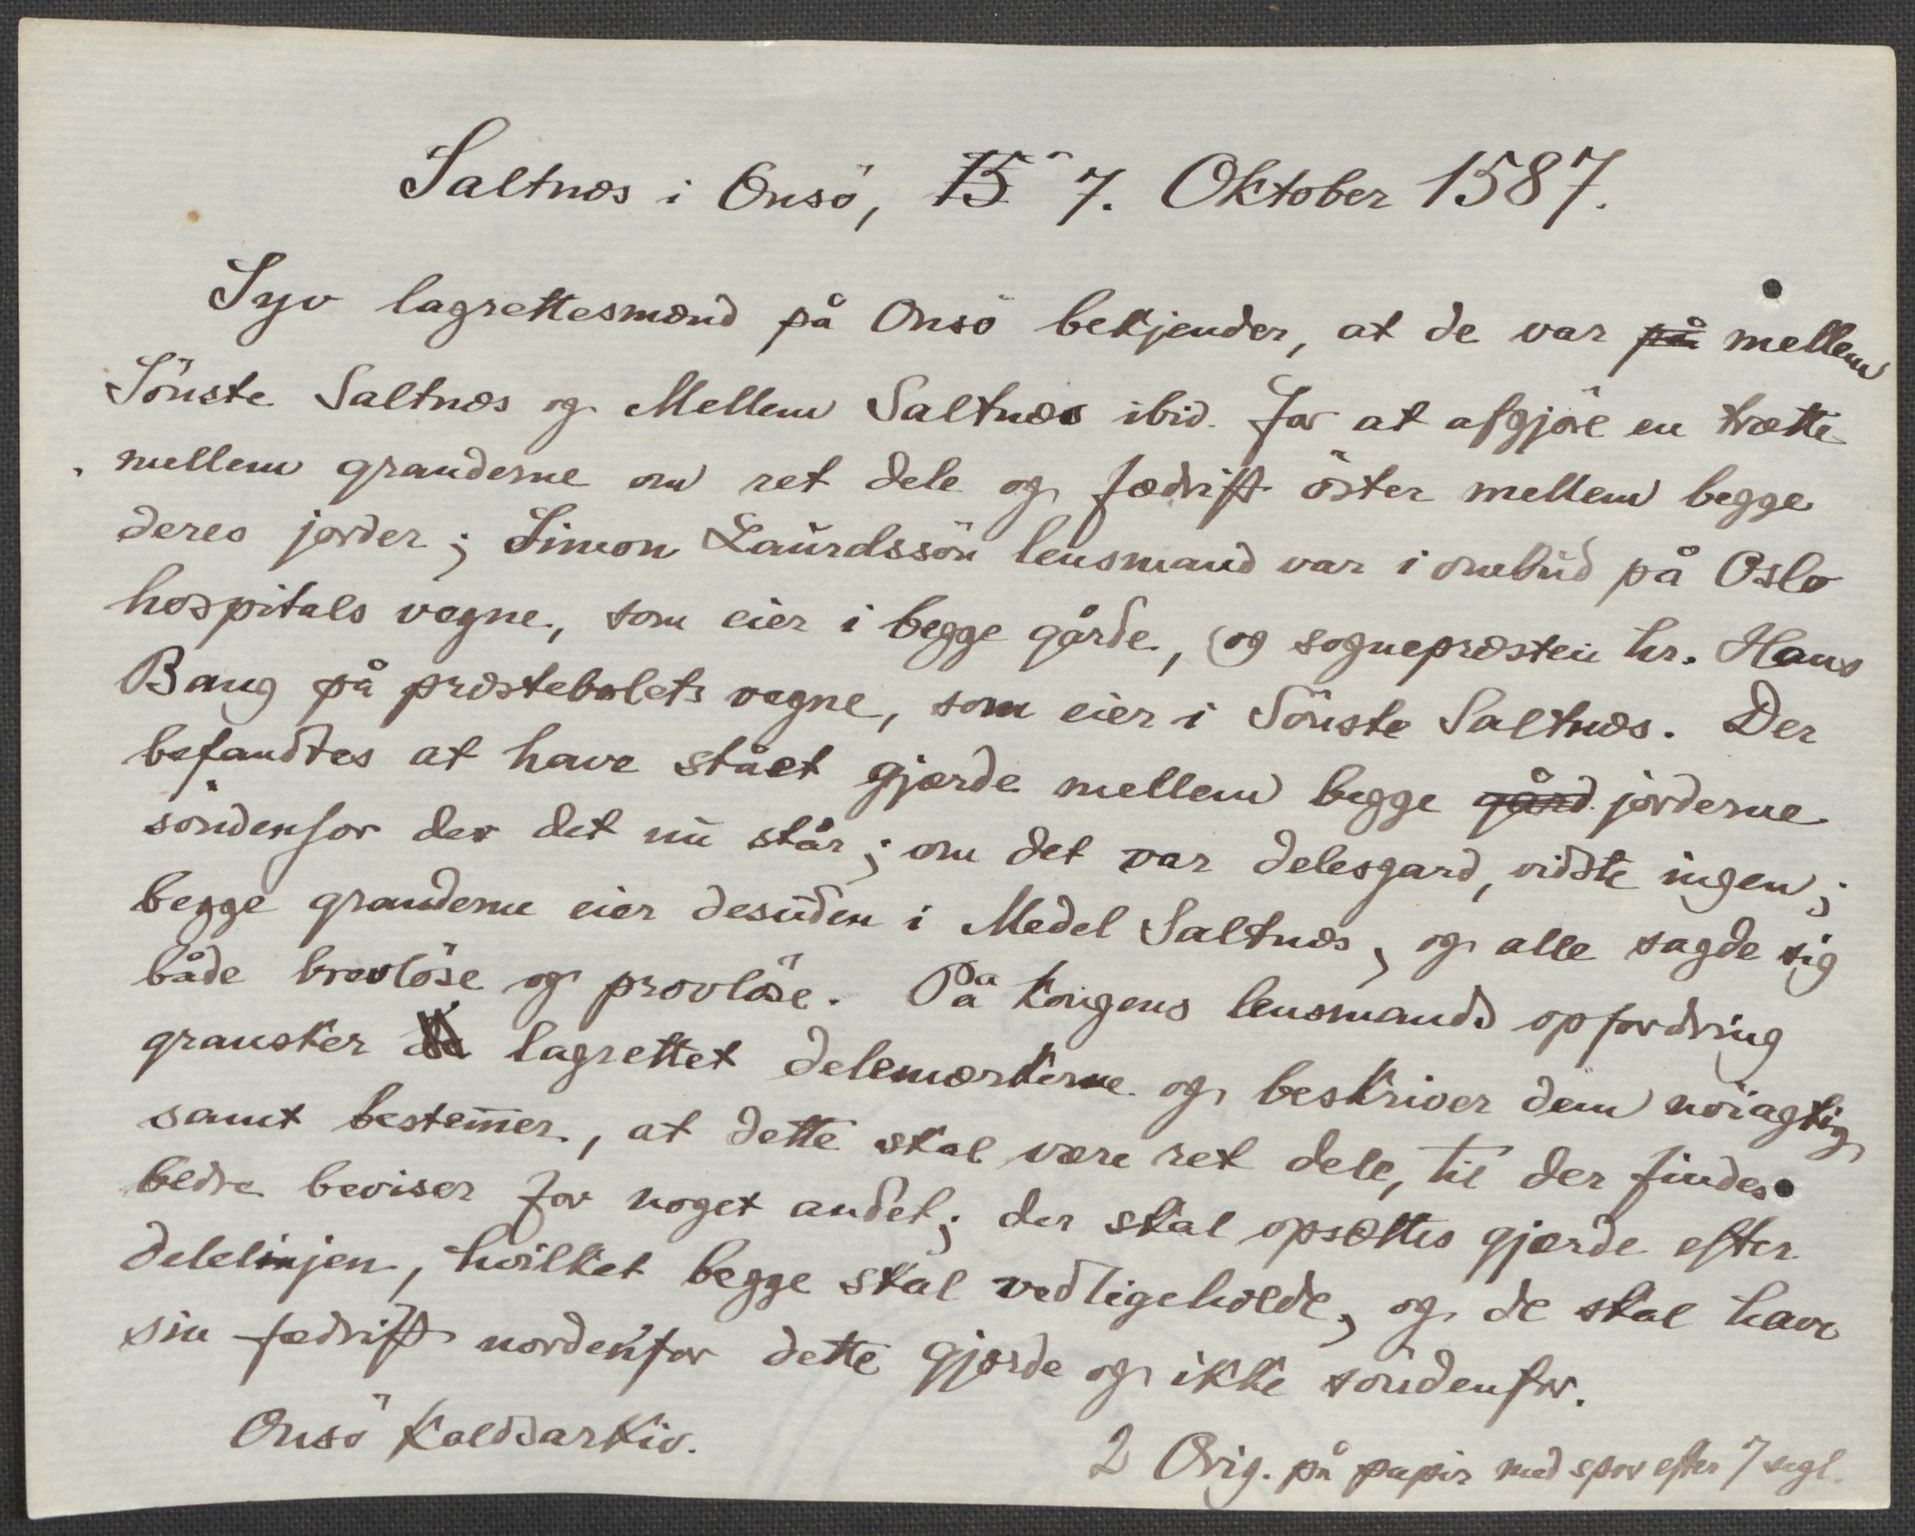 Saltnæs i Onsö, 15 7. Oktober 1587.
Syv lagrettesmænd på Onsö bekjender, at de var på mellem
Sönste Saltnæs og Mellem Saltnæs ibid. for at afgjöre en trætte
mellem granderne om ret dele og fædrift öster mellem begge
deres jorder; Simon Laurdssön lensmand var i ombud på Oslo
hospitals vegne, som eier i begge gårde, og sognepræsten hr. Hans
Bang på præstebolets vegne, som eier i Sönste Saltnæs. Der
befandtes at have stået gjærde mellem begge gård jorderne
söndenfor der det nu står; om det var delesgard, vidste ingen;
begge granderne eier desuden i Medel Saltnæs, og alle sagde sig
både brevlöse og provlöse. På kongens lensmands opfordring
gransker lagrettet delemærkerne og beskriver dem nöiagtig
samt bestem̅er, at dette skal være ret dele, til der findes
bedre beviser for noget andet; der skal opsættes gjærde efter
delelinjen, hvilket begge skal vedligeholde, og de skal have
sin fædrift nordenfor dette gjærde og ikke söndenfor.
Onsö kaldsarkiv.
2 Orig. på papir med spor efter 7 segl.